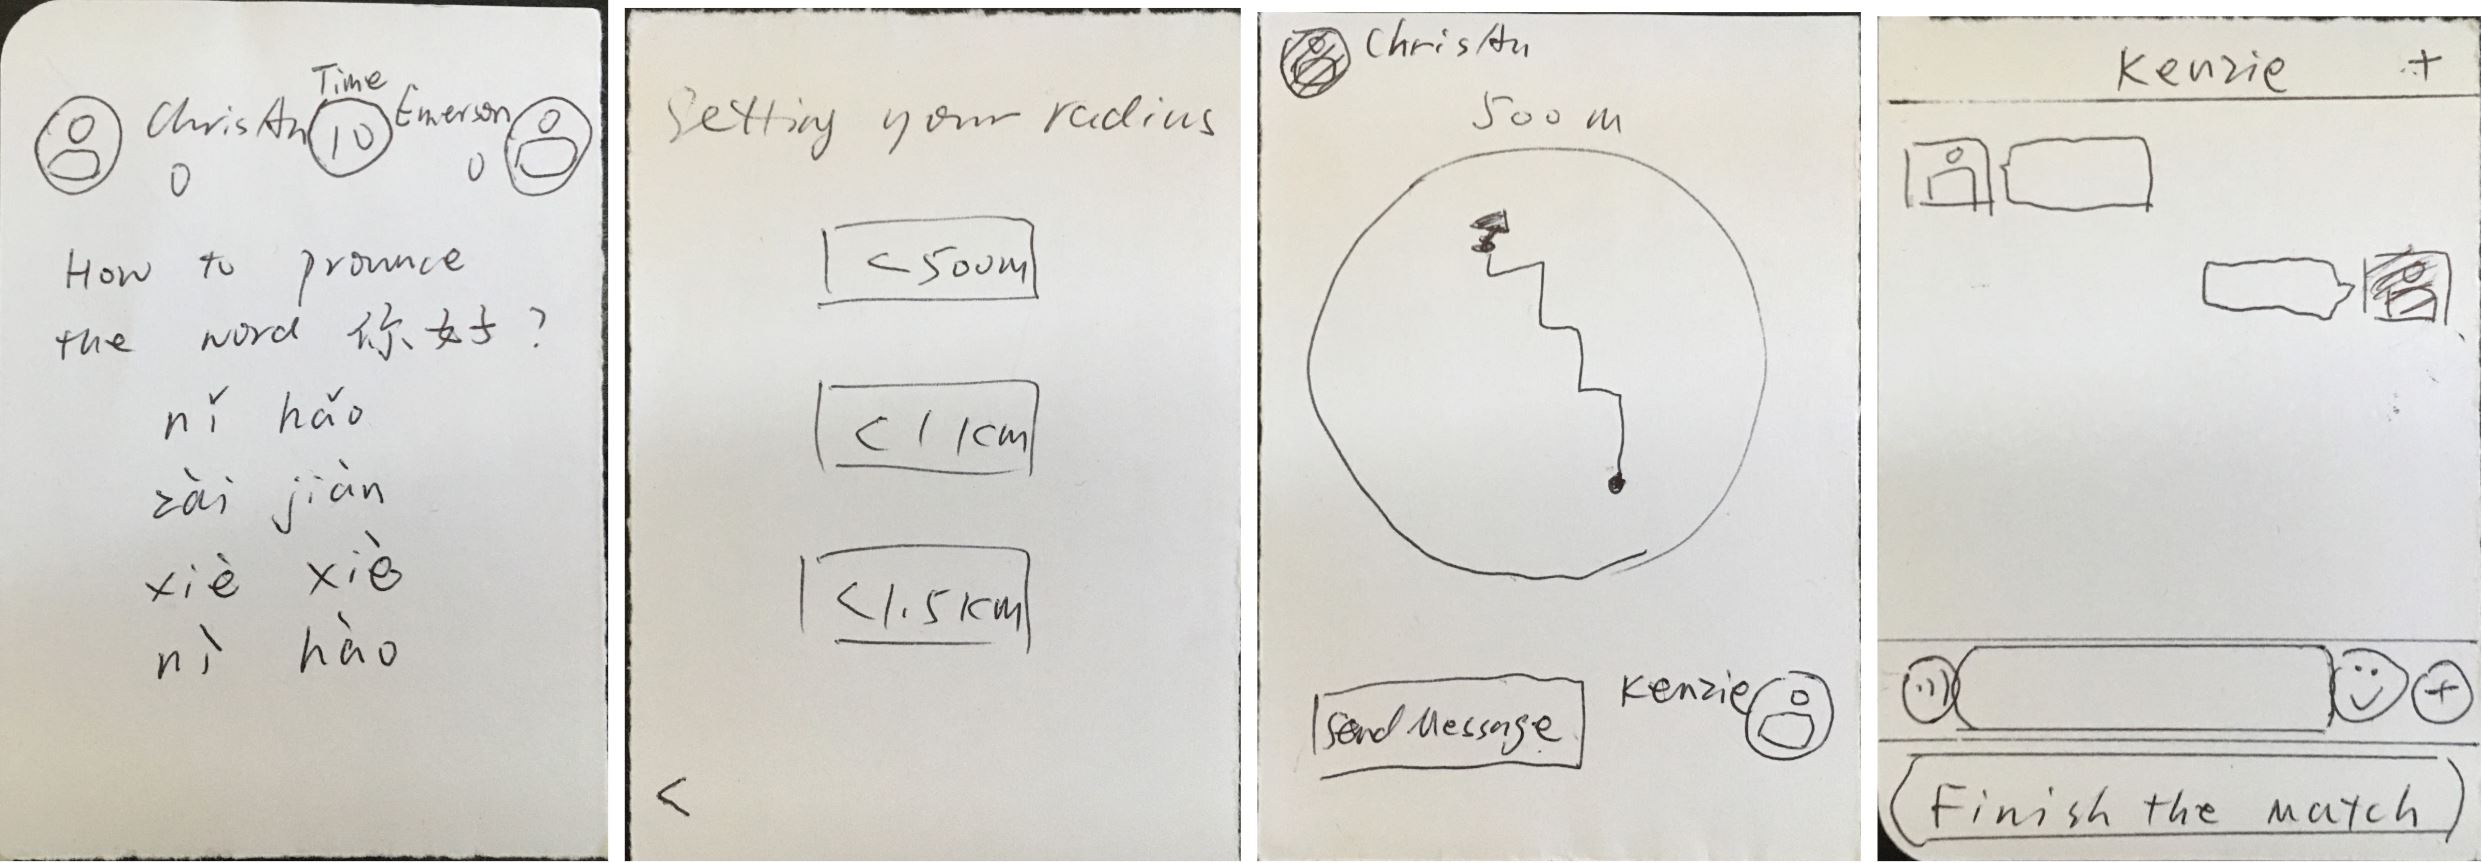 Time
ChrisAn 10 Emerson
0 0
How to prounce
the word 你好?
nǐ hǎo
zài jiàn
xiè xiè
nì hào
Setting your radius
<500m
<1km
<1.5km
<
ChrisAn
500m
Send Message
Kenzie
Kenzie +
+
Finish the match